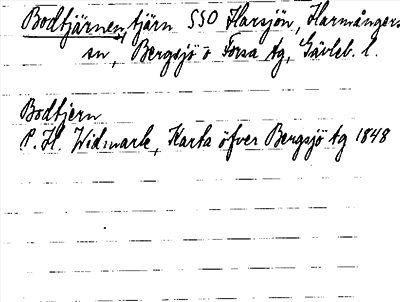 Bodtjärnen, tjärn SSO Harsjön, Harmångers
sn, Bergsjö o Forsa tg, Gävleb. l.
Bodtjern
P. H. Widmark, Karta öfver Bergsjö tg 1848